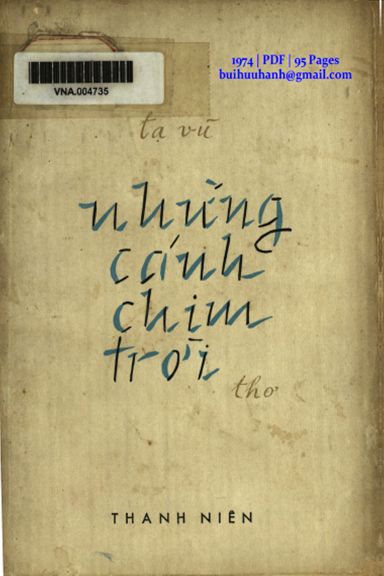 VNA.004735
1974 | PDF | 95 Pages
buihuuhanh@gmail.com
tạ vũ
những
cánh
chim
trời
thơ
THANH NIÊN